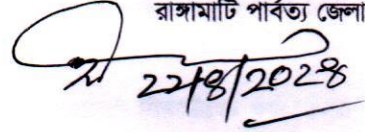 রাঙ্গামাটি পার্বত্য জেলা
২২/৪/২০২৪